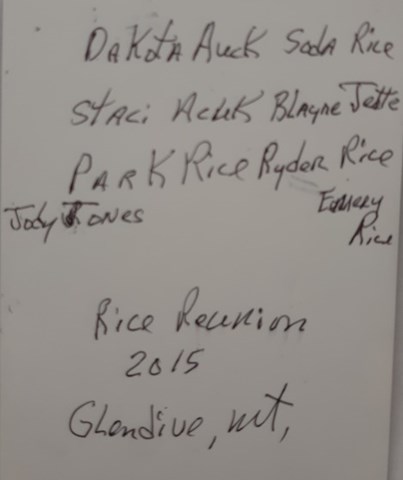 Dakota Auck Soda Rice
Staci Auck Blayne Jette
Park Rice Ryder Rice
Jody Jones Emery
Rice
Rice Reunion
2015
Glendive, mt,